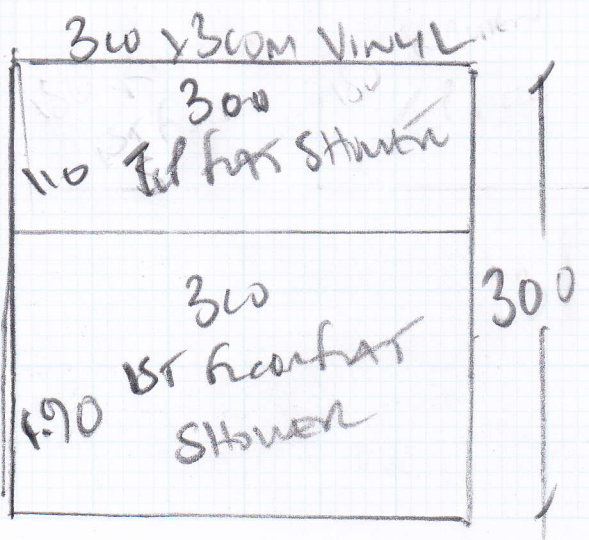 300 x 300M VINYL
300
110
FLAT SHOWER
300
300
1ST FLOOR FLAT
1.90
SHOWER